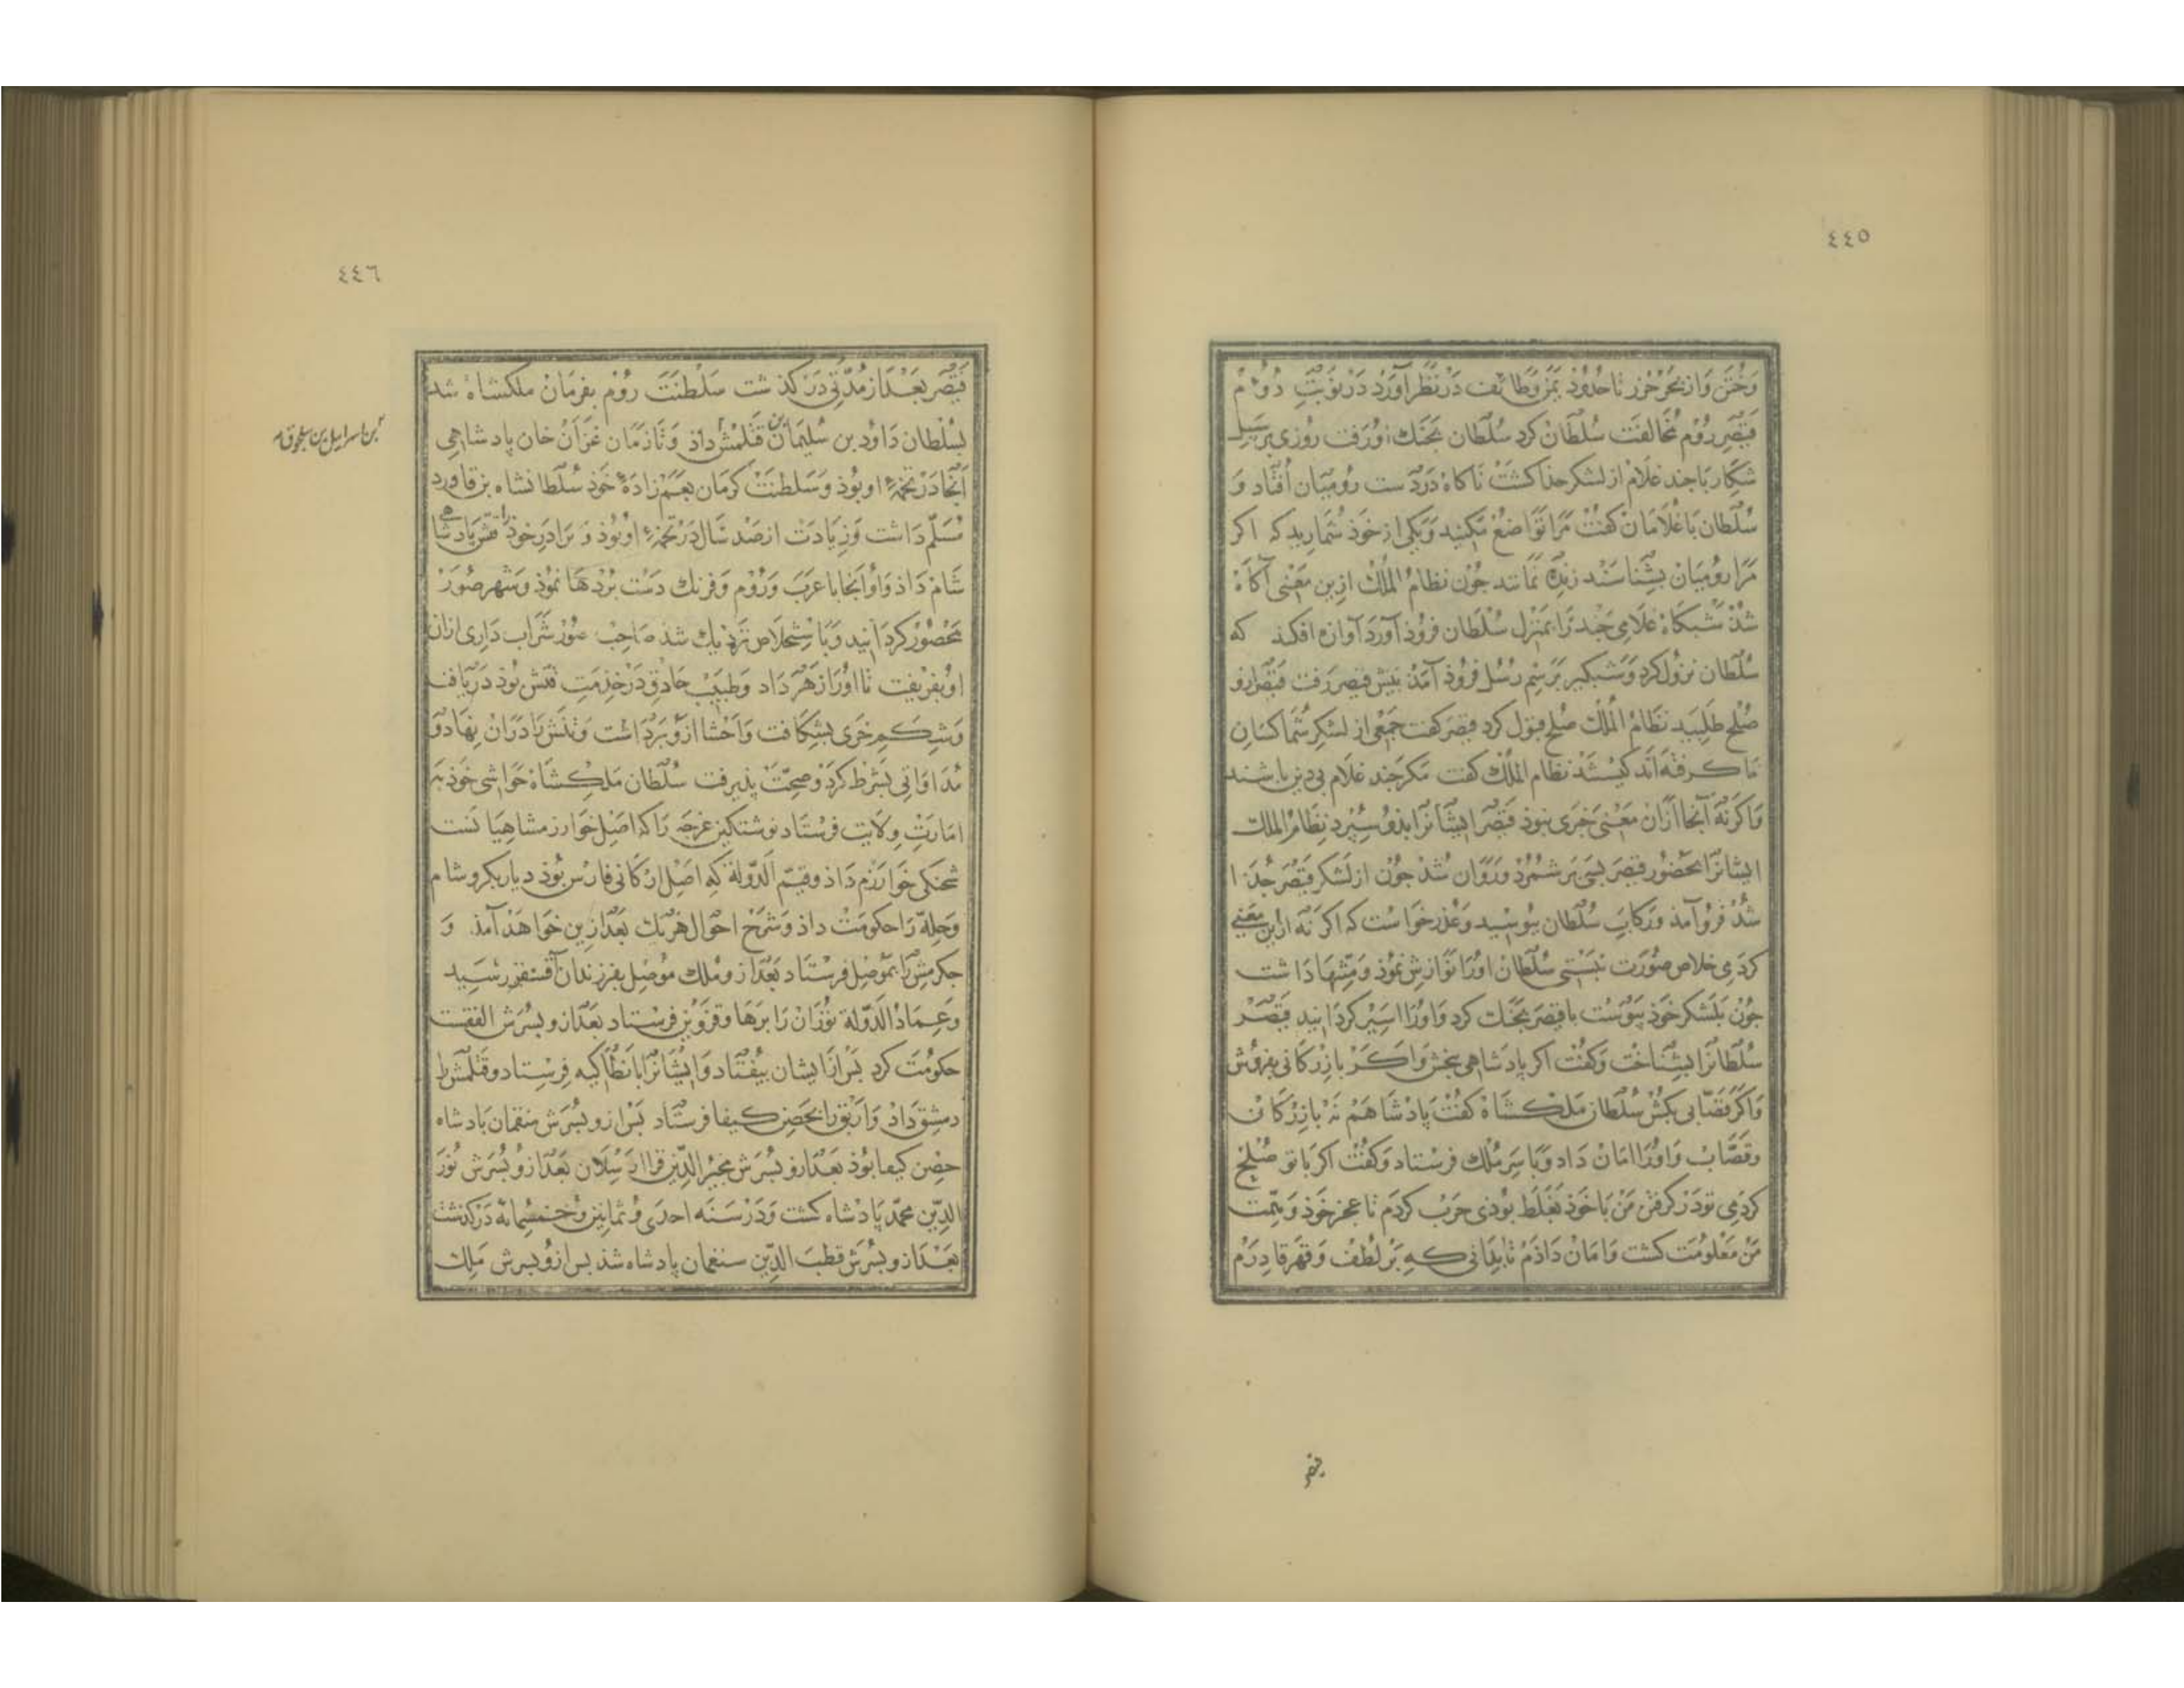 ٤٤٥
وختن و از بحر خزر تا حدود یمن وطائف در نظر آورد در نوبت دوم
قیصر روم مخالفت سلطان کرد سلطان بجنك او رفت روزی بر سبیل
شکار با جند غلام از لشکر جذا کشت ناکاه در دست رومیان افتاد و
سلطان با غلامان کفت مرا تواضع مکنید و یکی از خوذ شمارید که اکر
مرا رومیان بشناسند زنده نمانند جون نظام الملك ازین معنی آکاه
شذ شبکاه غلامی جند را بمنزل سلطان فروذ آورد آوازه افکند که
سلطان نزول کرد و شبکیر برسم رسل فروذ آمذ بیش قیصر رفت قیصر ازو
صلح طلبید نظام الملك صلح قبول کرد قیصر کفت جمعی از لشکر شما کسان
ما کرفته اند کیستند نظام الملك کفت مکر جند غلام بی دین باشند
واکرنه آنجا ازان معنی خبری نبوذ قیصر ایشانرا بذو سپرد نظام الملك
ایشانرا بحضور قیصر بسی بر شمرد و روان شد جون از لشکر قیصر جدا
شد فروآمذ و رکاب سلطان ببوسید وعذر خواست که اکر نه ازین معنی
کردمی خلاص صورت نبستی سلطان اورا نوازش نموذ و منتها داشت
جون بلشکر خوذ پیوست با قیصر بجنك کرد و اورا اسیر کردانید قیصر
سلطانرا بشناخت و کفت اکر پادشاهی ببخش و اکر بازرکانی بفروش
واکر قصابی بکش سلطان ملکشاه کفت پادشاهم نه بازرکان
وقصاب و اورا امان داد و با سر ملك فرستاد و کفت اکر با تو صلح
کردمی تو در کرفتن من با خوذ بغلط بوذی حرب کردم تا عجز خوذ و همت
من معلومت کشت و امان داذم تا بدانی که بر لطف و قهر قادرم
قیصر
٤٤٦
قیصر بعد از مدتی در کذشت سلطنت روم بفرمان ملکشاه شد
بسلطان داود بن سلیمان بن قتلمش داذ و تا زمان غزان خان پادشاهی
بن اسرائیل بن سلجوق
آنجا در تخمهٔ او بوذ و سلطنت کرمان بعم زادهٔ خوذ سلطانشاه بن قاورد
مسلم داشت و زیادت از صد سال در تخمهٔ او بوذ و برادر خوذ تتش را پادشاهی
شام داذ و او آنجا با عرب و روم و فرنك دست بردها نموذ و شهر صور
محصور کردانید و با ستخلاص نزدیك شذ صاحب صور شراب داری ازان
او بفریفت تا اورا زهر داد و طبیب حاذق در خذمت تتش بوذ دریافت
و شکم خری بشکافت و احشا ازو برداشت و تتش را دران نهاد و
مداواتی بشرط کرد و صحت پذیرفت سلطان ملکشاه حواشی خوذ به
امارت ولایت فرستاد نوشتکین غرجه را که اصل خوارزمشاهیانست
شحنکی خوارزم داذ وقسیم الدوله که اصل ارکانی فارس بوذ دیاربکر و شام
وحله را حکومت داذ و شرح احوال هریك بعد ازین خواهد آمذ و
جکرمش را بموصل فرستاد بعد ازو ملك موصل بفرزندان آقسنقر رسید
وعماد الدوله توزان را برها وقزوین فرستاد بعد ازو بسرش الفقت
حکومت کرد بس از ایشان بیفتاد و ایشانرا بانطاکیه فرستاد و قتلمش را
دمشق داد و ارتق را بحصن کیفا فرستاد بس ازو بسرش سقمان پادشاه
حصن کیفا بوذ بعد ازو بسرش مجیر الدین قرا ارسلان بعد ازو بسرش نور
الدین محمد پادشاه کشت و در سنه احدی و ثمانین و خمسمائه درکذشت
بعد ازو بسرش قطب الدین سنغمان پادشاه شذ بس ازو بسرش ملك